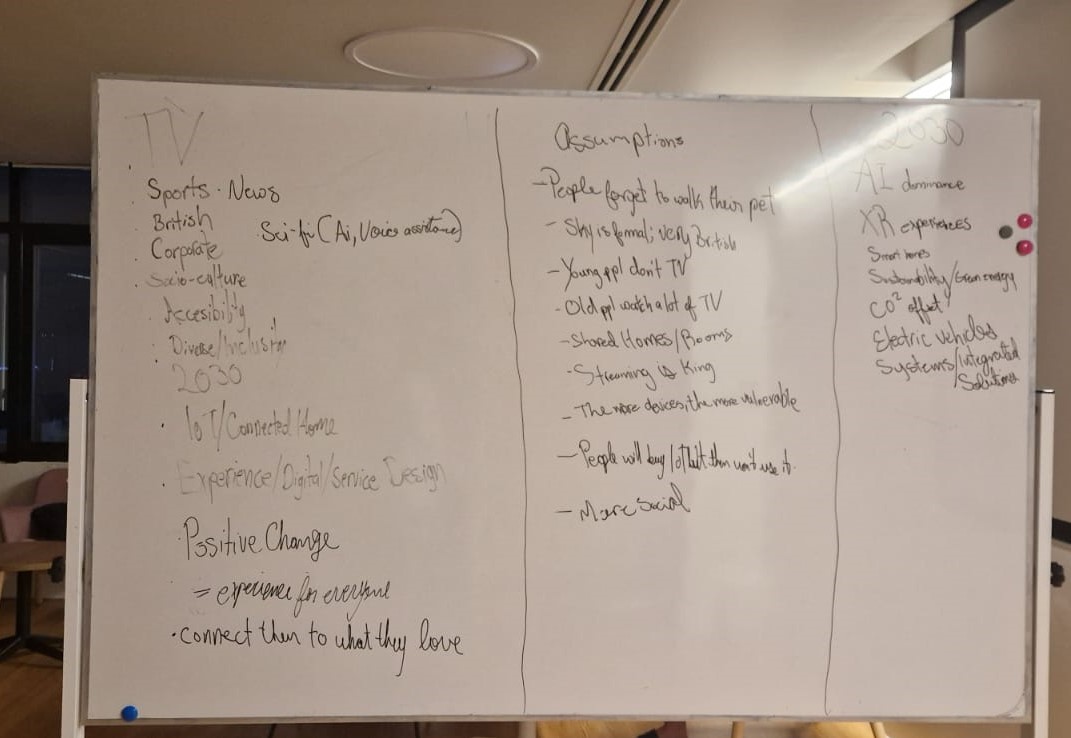 TV
Sports · News
British
Sci-fi (Ai, Voice assistance)
Corporate
Socio-culture
Accesibility
Diverse/Inclusive
2030
· IoT/Connected Home
· Experience/Digital/Service Design
· Positive Change
= experience for everyone
· connect them to what they love
Assumptions
- People forget to walk their pet
- Sky is formal; very British
- Young ppl don't TV
- Old ppl watch a lot of TV
- Shared Homes/Rooms
- Streaming is King
- The more devices, the more vulnerable
- People will buy IoT but then won't use it.
- More Social
2030
AI dominance
XR experiences
Smart homes
Sustainability/Green energy
CO² offset
Electric vehicles
Systems/Integrated
/Solutions